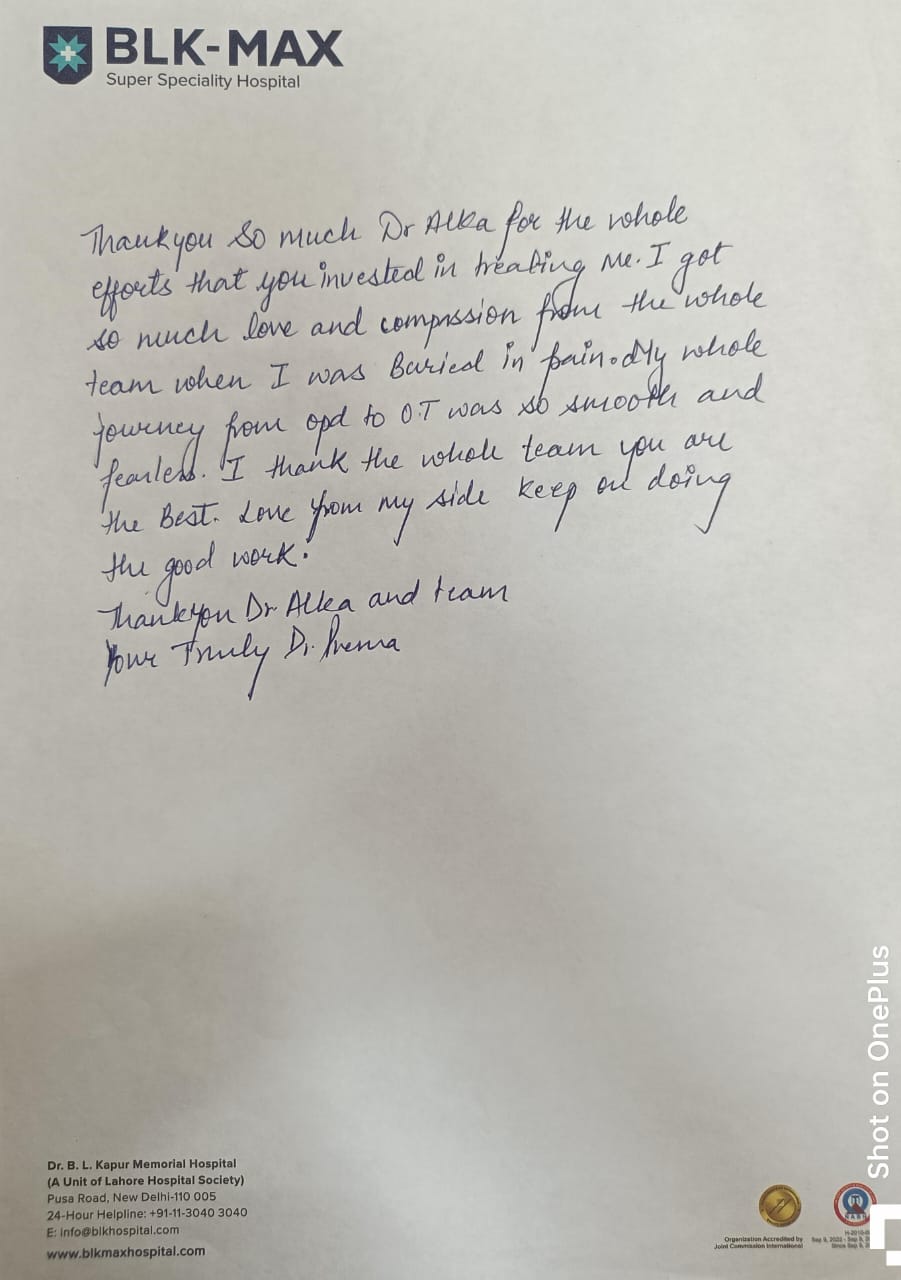 BLK-MAX
Super Speciality Hospital
Thankyou So much Dr Alka for the whole
efforts that you invested in treating me. I got
so much love and compassion from the whole
team when I was Buried in pain. My whole
journey from opd to O.T was so smooth and
fearless. I thank the whole team you are
the Best. Love from my side keep on doing
the good work.
Thankyou Dr Alka and team
Your Truly Dr. Prerna
Dr. B. L. Kapur Memorial Hospital
(A Unit of Lahore Hospital Society)
Pusa Road, New Delhi-110 005
24-Hour Helpline: +91-11-3040 3040
E: info@blkhospital.com
www.blkmaxhospital.com
Organization Accredited by
Joint Commission International
Shot on OnePlus